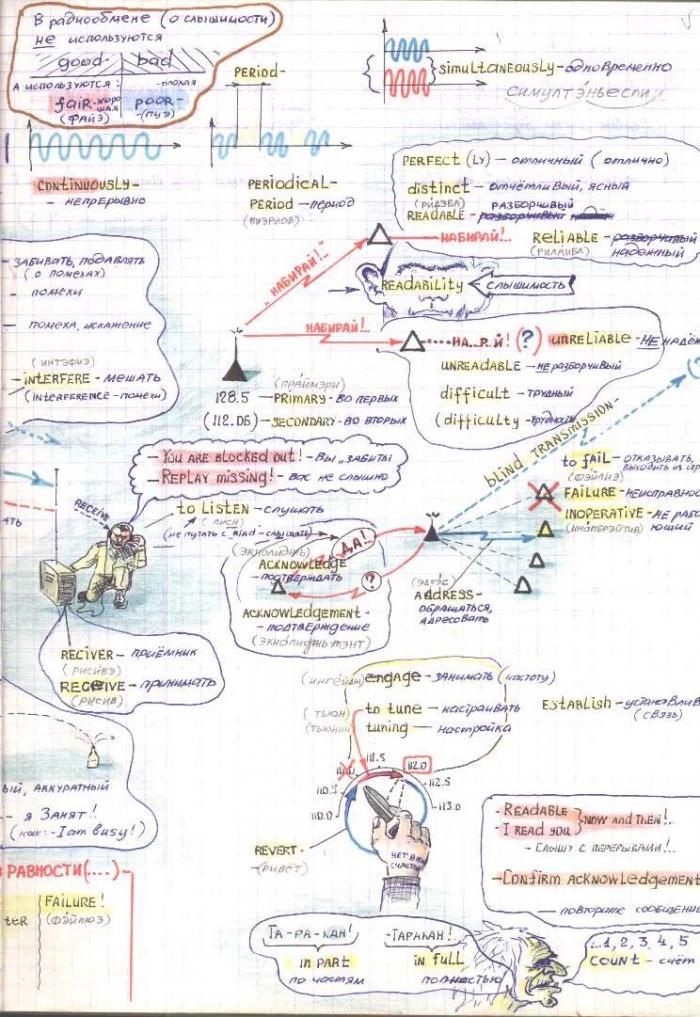 В радиообмене (о слышимости)
не используются
good bad
А используются: -плохая
fair-хорошая POOR-
(ФАЙЭ) -(ПУЭ)
PERIOD-
SIMULTANEOUSLY-одновременно
СИМУЛТЭНЬЕСЛИ
CONTINUOUSLY-
- НЕПРЕРЫВНО
PERIODICAL-
PERIOD-период
(ПИЭРИОД)
PERFECT (LY) - отличный (отлично)
distinct - отчётливый, ясный
(РИДЭБЛ) РАЗБОРЧИВЫЙ
READABLE - разборчивый
НАБИРАЙ!..
RELIABLE - разборчивый
(РИЛАЙБЛ) надежный
„НАБИРАЙ!"
READABILITY
СЛЫШИМОСТЬ
- ЗАБИВАТЬ, ПОДАВЛЯТЬ
(о помехах)
- помехи
- помеха, искажение
(ИНТЭФИЭ)
- INTERFERE - МЕШАТЬ
(INTERFERENCE - помехи)
НАБИРАЙ!..
НА..Р.Й! (?) UNRELIABLE - НЕНАДЁЖ
UNREADABLE - НЕРАЗБОРЧИВЫЙ
difficult - трудный
(difficulty - трудность
(ПРАЙМЭРИ)
128.5 - PRIMARY - ВО ПЕРВЫХ
(112.06) - SECONDARY - ВО ВТОРЫХ
blind TRANSMISSION-
- YOU ARE BLOCKED OUT! - Вы „ЗАБИТЫ
- REPLAY MISSING! - Вас не слышно
RECEIVE
to LISTEN - слушать
(ЛИСН)
(не путать с READ - слышать)
(ЭКНОЛИДЖ)
ACKNOWLEDGE
- ПОДТВЕРЖДАТЬ
ДА!
?
ACKNOWLEDGEMENT-
- ПОДТВЕРЖДЕНИЕ
(ЭКНОЛИДЖЬМЭНТ)
to fAIL - ОТКАЗЫВАТЬ,
(ФЭЙЛ) ВЫХОДИТЬ ИЗ
FAILURE - НЕИСПРАВНО
INOPERATIVE - НЕ РАБО
ЮЩИЙ
(ЭДРЭС)
ADDRESS-
- ОБРАЩАТЬСЯ,
АДРЕСОВАТЬ
RECIVER - ПРИЁМНИК
(РИСИВЭ)
RECEIVE - ПРИНИМАТЬ
(РИСИВ)
(ИНГЕЙДЖ) engage - ЗАНИМАТЬ (частоту)
(ТЬЮН) to tune - НАСТРАИВАТЬ
(ТЬЮНИН) tuning - НАСТРОЙКА
ESTABLISH - УСТАНАВЛИВ
(связь)
110.0
110.5
111.0
111.5
112.0
112.5
113.0
REVERT-
- (РИВЁТ)
ЫЙ, АККУРАТНЫЙ
- Я ЗАНЯТ!!
(КАК: - I am busy!)
- READABLE
- I READ YOU
NOW AND THEN!..
- СЛЫШУ С ПЕРЕРЫВАМИ!..
- CONFIRM ACKNOWLEDGEMENT
- повторите сообщени
РАВНОСТИ(....)
FAILURE!
(ФЭЙЛЮЭ)
TER
ТА-РА-КАН! -ТАРАКАН!
IN PART IN FULL
по частям полностью
:..1, 2, 3, 4, 5
COUNT - счёт